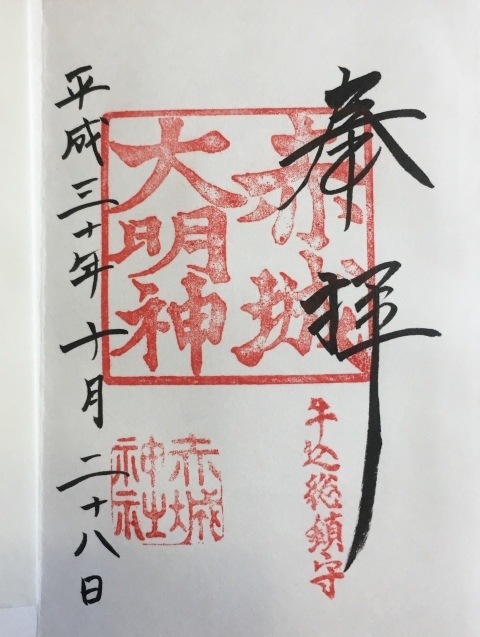 奉拝
牛込総鎮守
赤城
大明神
赤城
神社
平成三十年十月二十八日